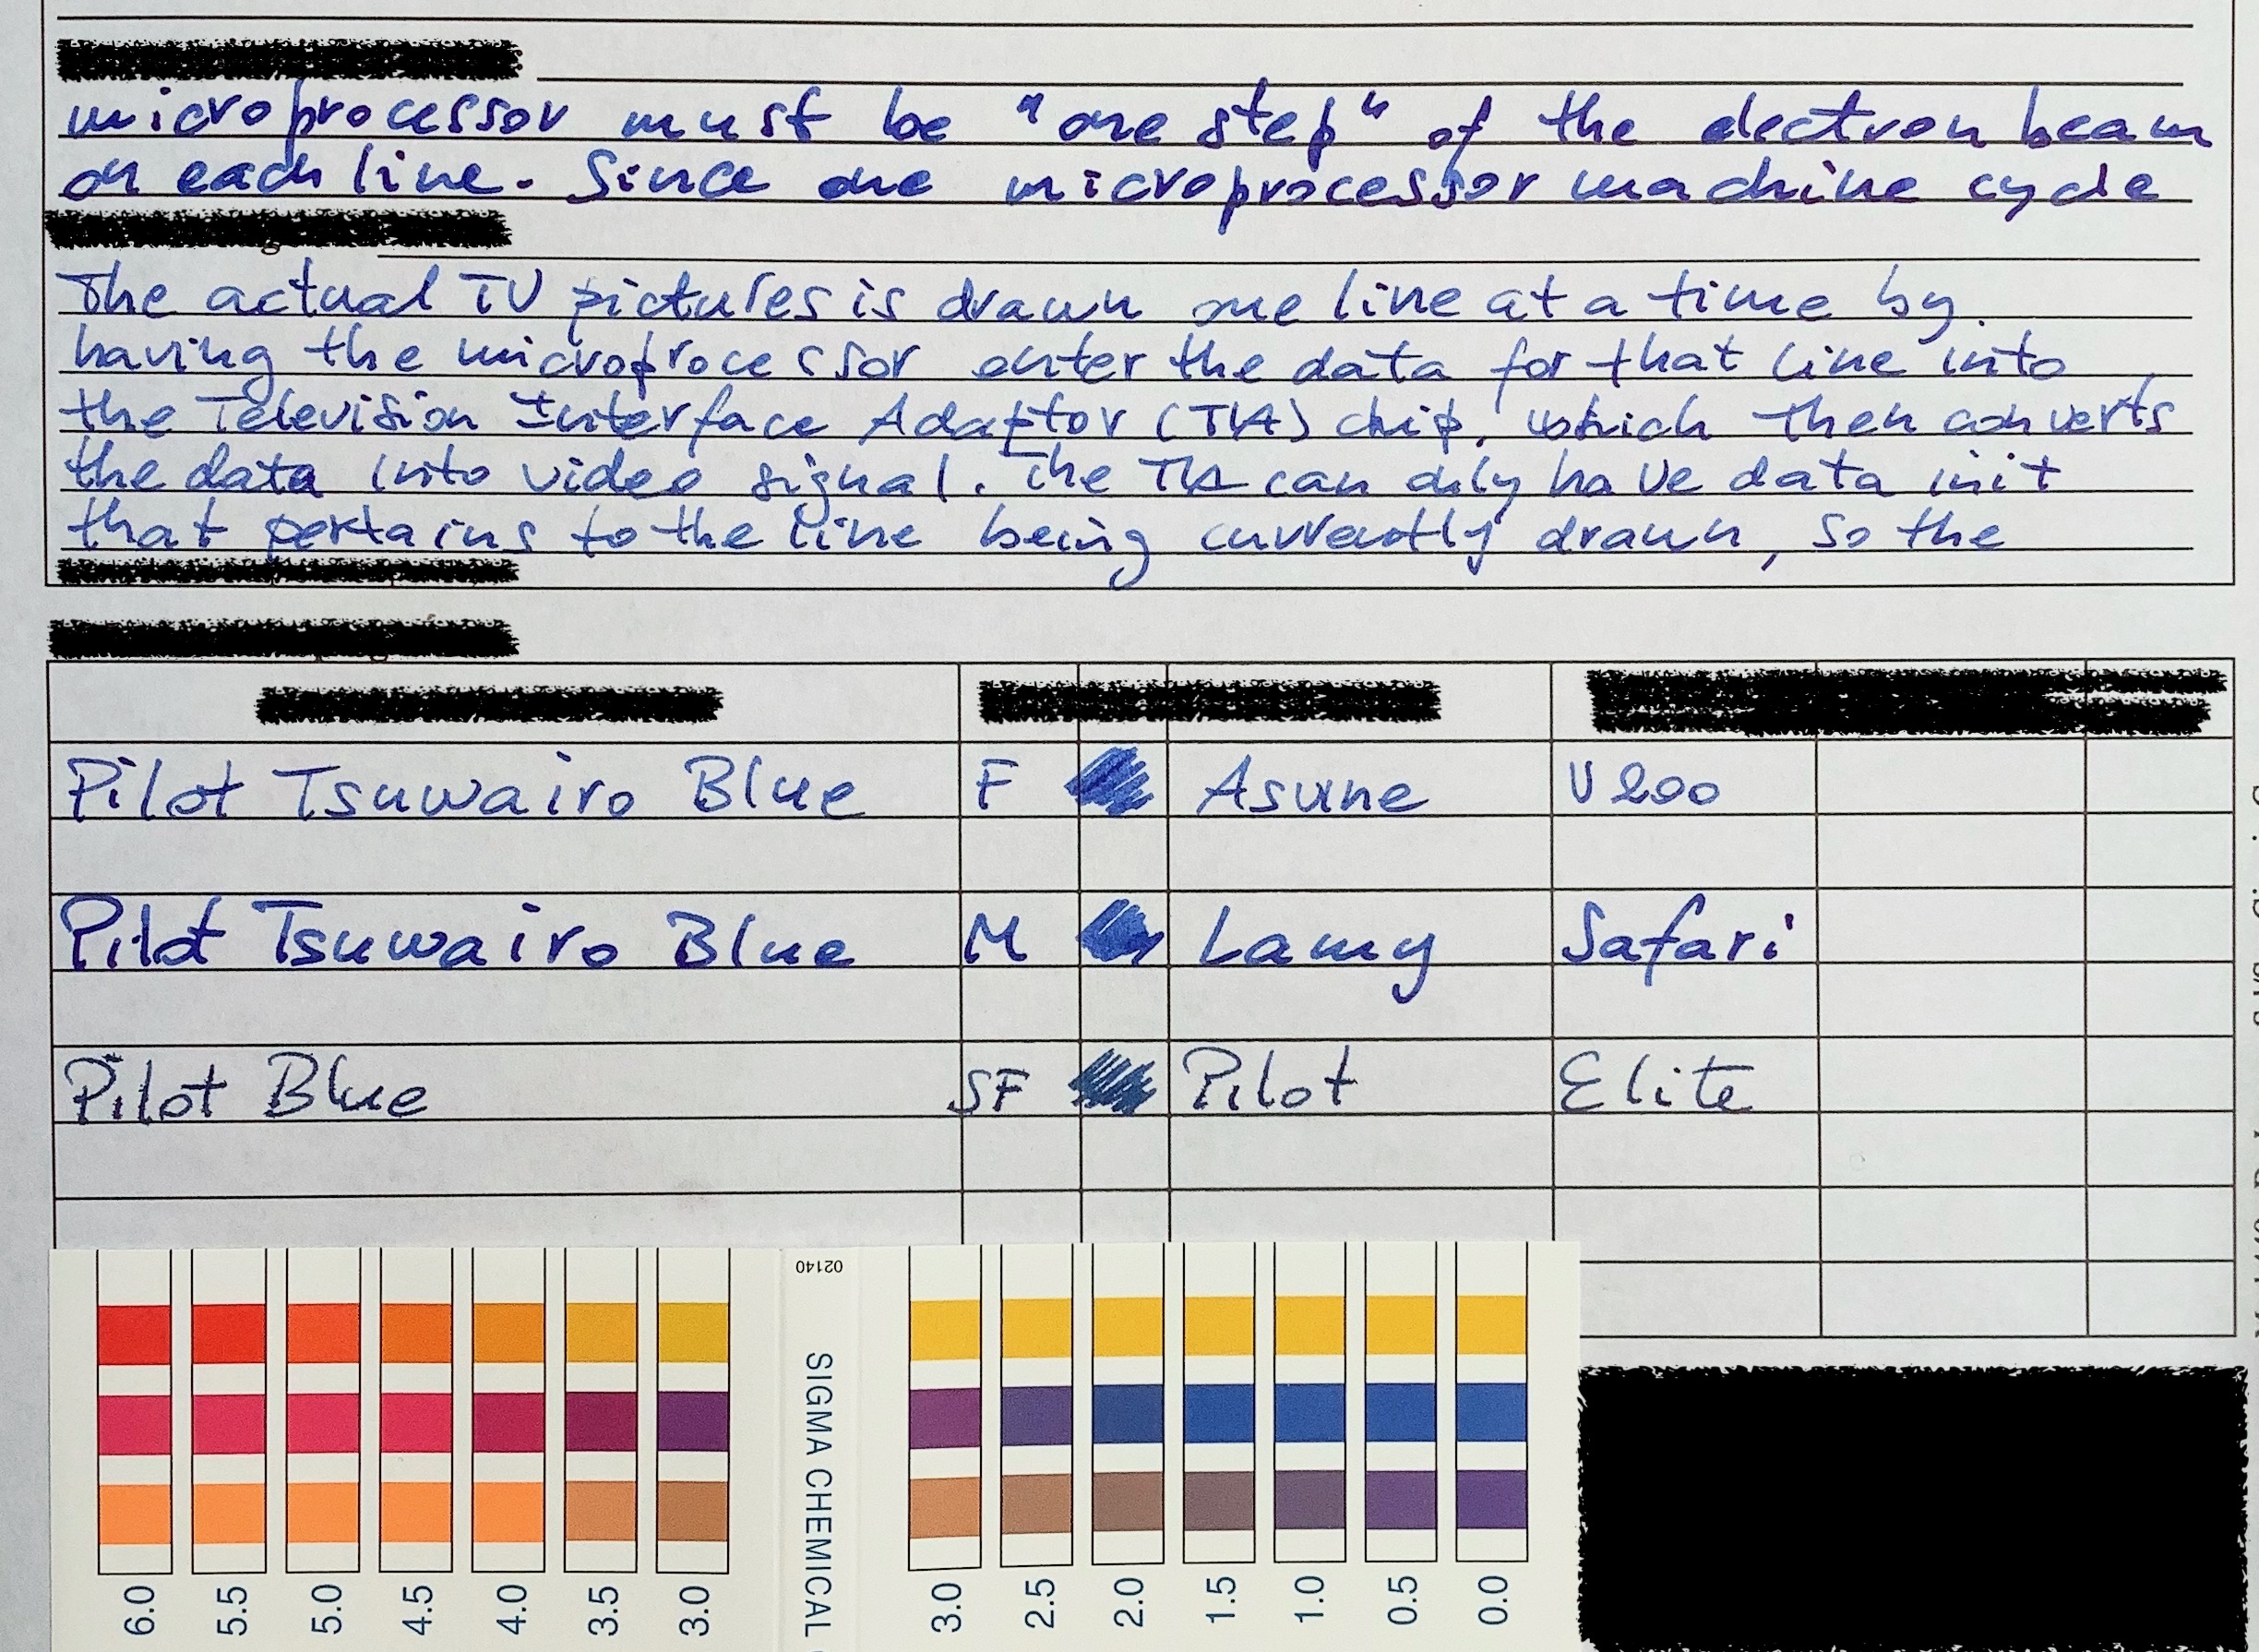 microprocessor must be "one step" of the electron beam
on each line. Since one microprocessor machine cycle
The actual TV pictures is drawn one line at a time by
having the microprocessor enter the data for that line into
the Television Interface Adaptor (TIA) chip, which then converts
the data into video signal. The TIA can only have data in it
that pertains to the line being currently drawn, so the
Pilot Tsuwairo Blue F Asvine V200
Pilot Tsuwairo Blue M Lamy Safari
Pilot Blue SF Pilot Elite
02140
SIGMA CHEMICAL
6.0 5.5 5.0 4.5 4.0 3.5 3.0
3.0 2.5 2.0 1.5 1.0 0.5 0.0